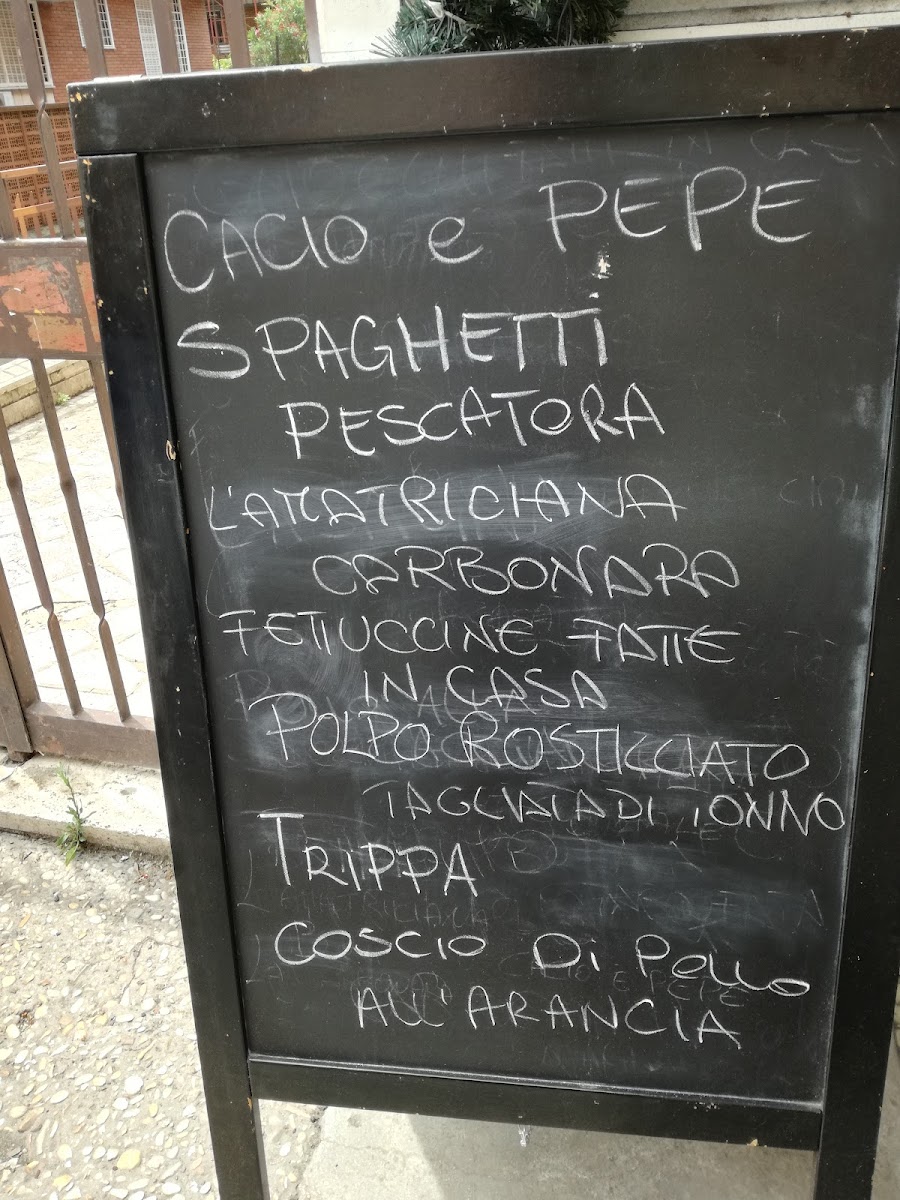 CACIO e PEPE
SPAGHETTI
PESCATORA
L'AMATRICIANA
CARBONARA
FETTUCCINE FATTE
IN CASA
POLPO ROSTICCIATO
TAGLIATA DI TONNO
TRIPPA
COSCIO Di POLLO
ALL'ARANCIA